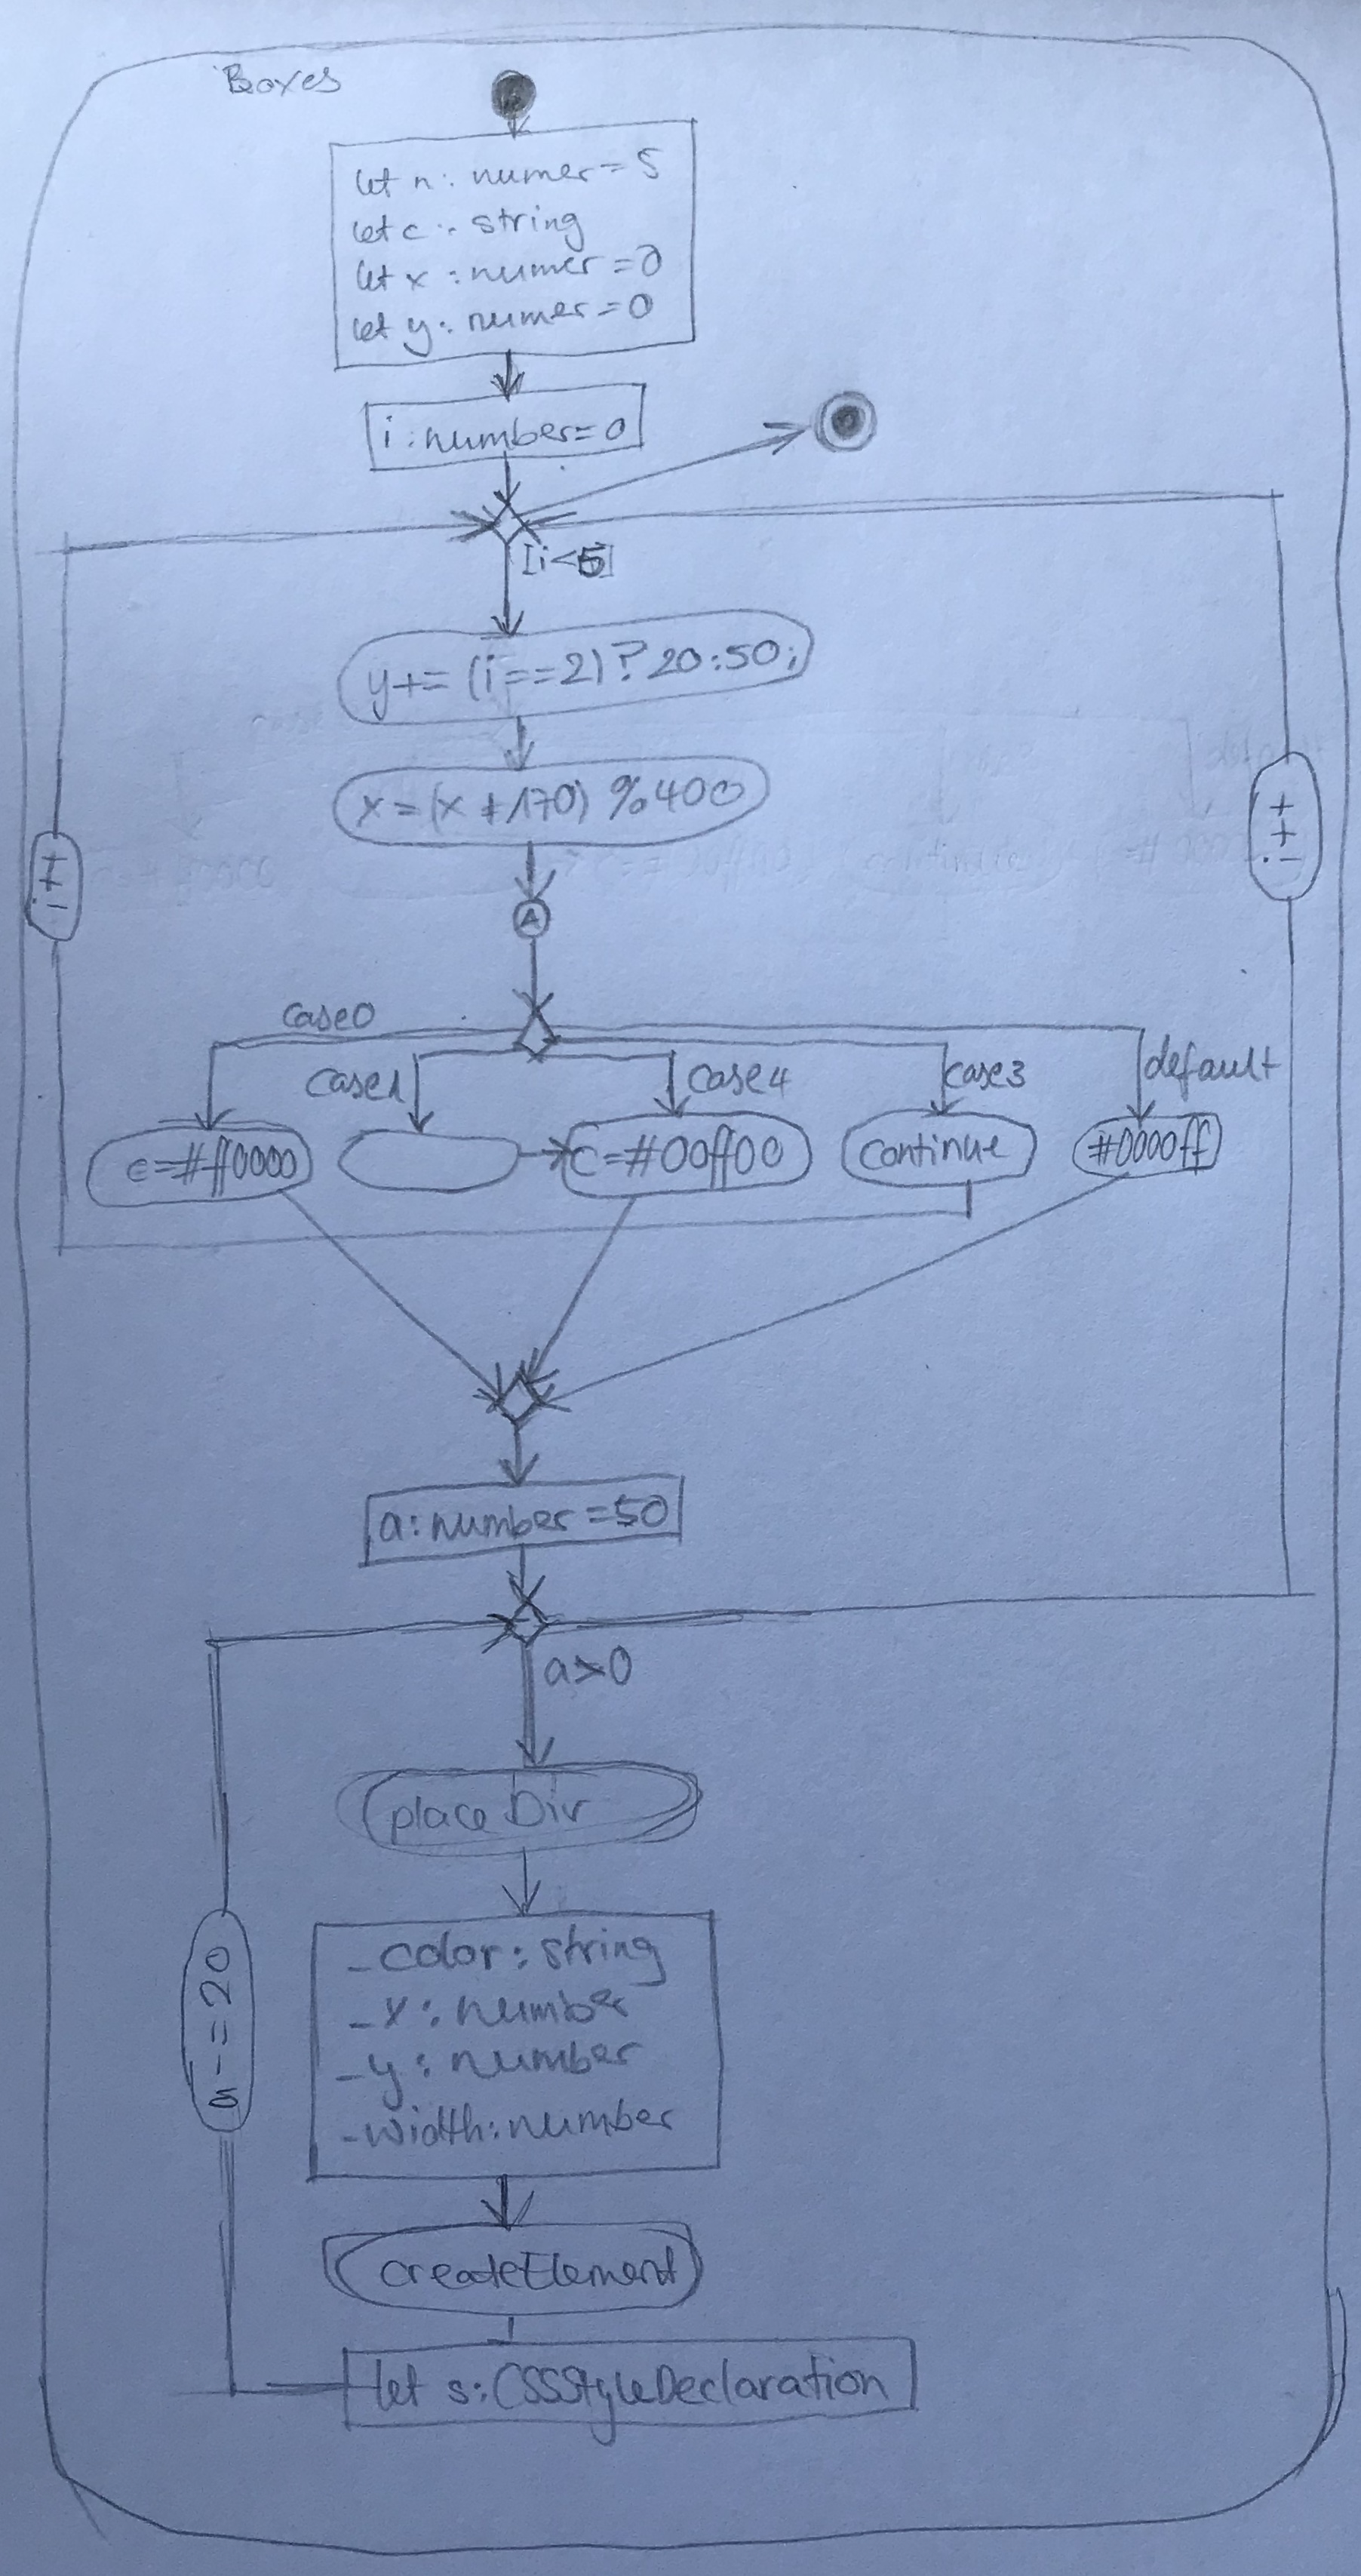 Boxes
let n: numer=5
let c: string
let x: numer=0
let y: numer=0
i:number=0
[i<5]
y+=(i==2)?20:50;
x=(x+170)%400
i++
i++
A
case0
case1
case4
case3
default
c=#ff0000
c=#00ff00
continue
#0000ff
a:number=50
a>0
placeDiv
_color:string
_x:number
_y:number
_width:number
a-=20
createElement
let s:CSSStyleDeclaration